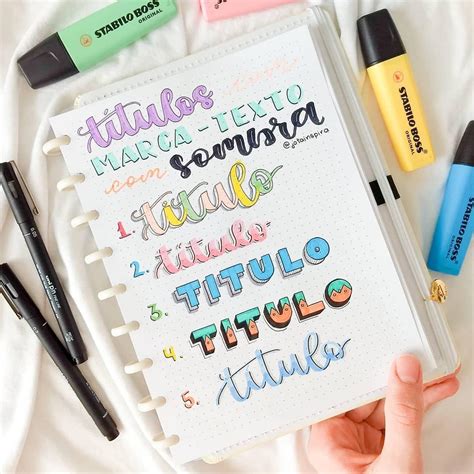 STABILO BOSS
ORIGINAL
STABILO BOSS
ORIGINAL
títulos
MARCA-TEXTO
com sombra
@jotainspira
1. título
2. título
3. TITULO
4. TITULO
5. título
STABILO BOSS
ORIGINAL
STABILO BOSS
ORIGINAL